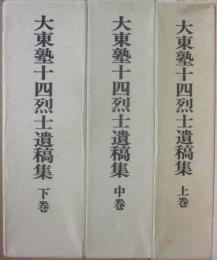 大東塾十四烈士遺稿集 上巻
大東塾十四烈士遺稿集 中巻
大東塾十四烈士遺稿集 下巻